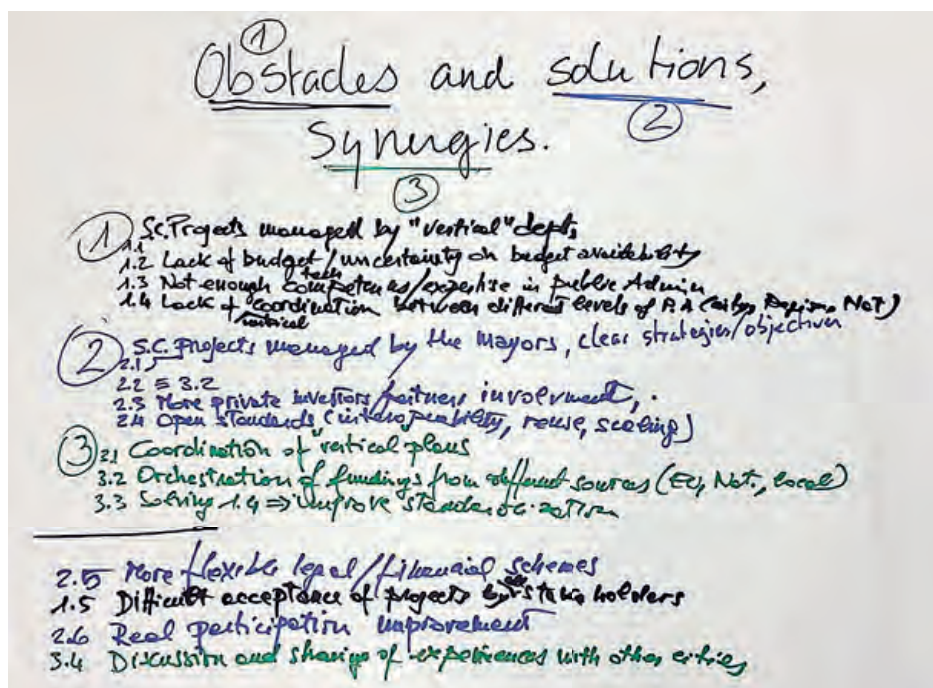 1
Obstacles and solutions,
2
Synergies.
3
1 S.C. Projects managed by "vertical" depts
1.1
1.2 Lack of budget/uncertainty on budget availability
tech
1.3 Not enough competences/expertise in public Admin
1.4 Lack of coordination between different levels of P.A (city, Region, Nat)
vertical
2 S.C. projects managed by the Mayors, clear strategies/objectives
2.1
2.2 ≡ 3.2
2.3 More private investors/partners involvment,
2.4 Open standards (interoperability, reuse, scaling)
3 Coordination of "vertical" plans
3.2 Orchestration of fundings from different sources (EU, Nat., local)
3.3 Solving 1.4 => improve standardization
2.5 More flexible legal/financial schemes
1.5 Difficult acceptance of projects by all stakeholders
2.6 Real participation improvement
3.4 Discussion and sharing of experiences with other cities